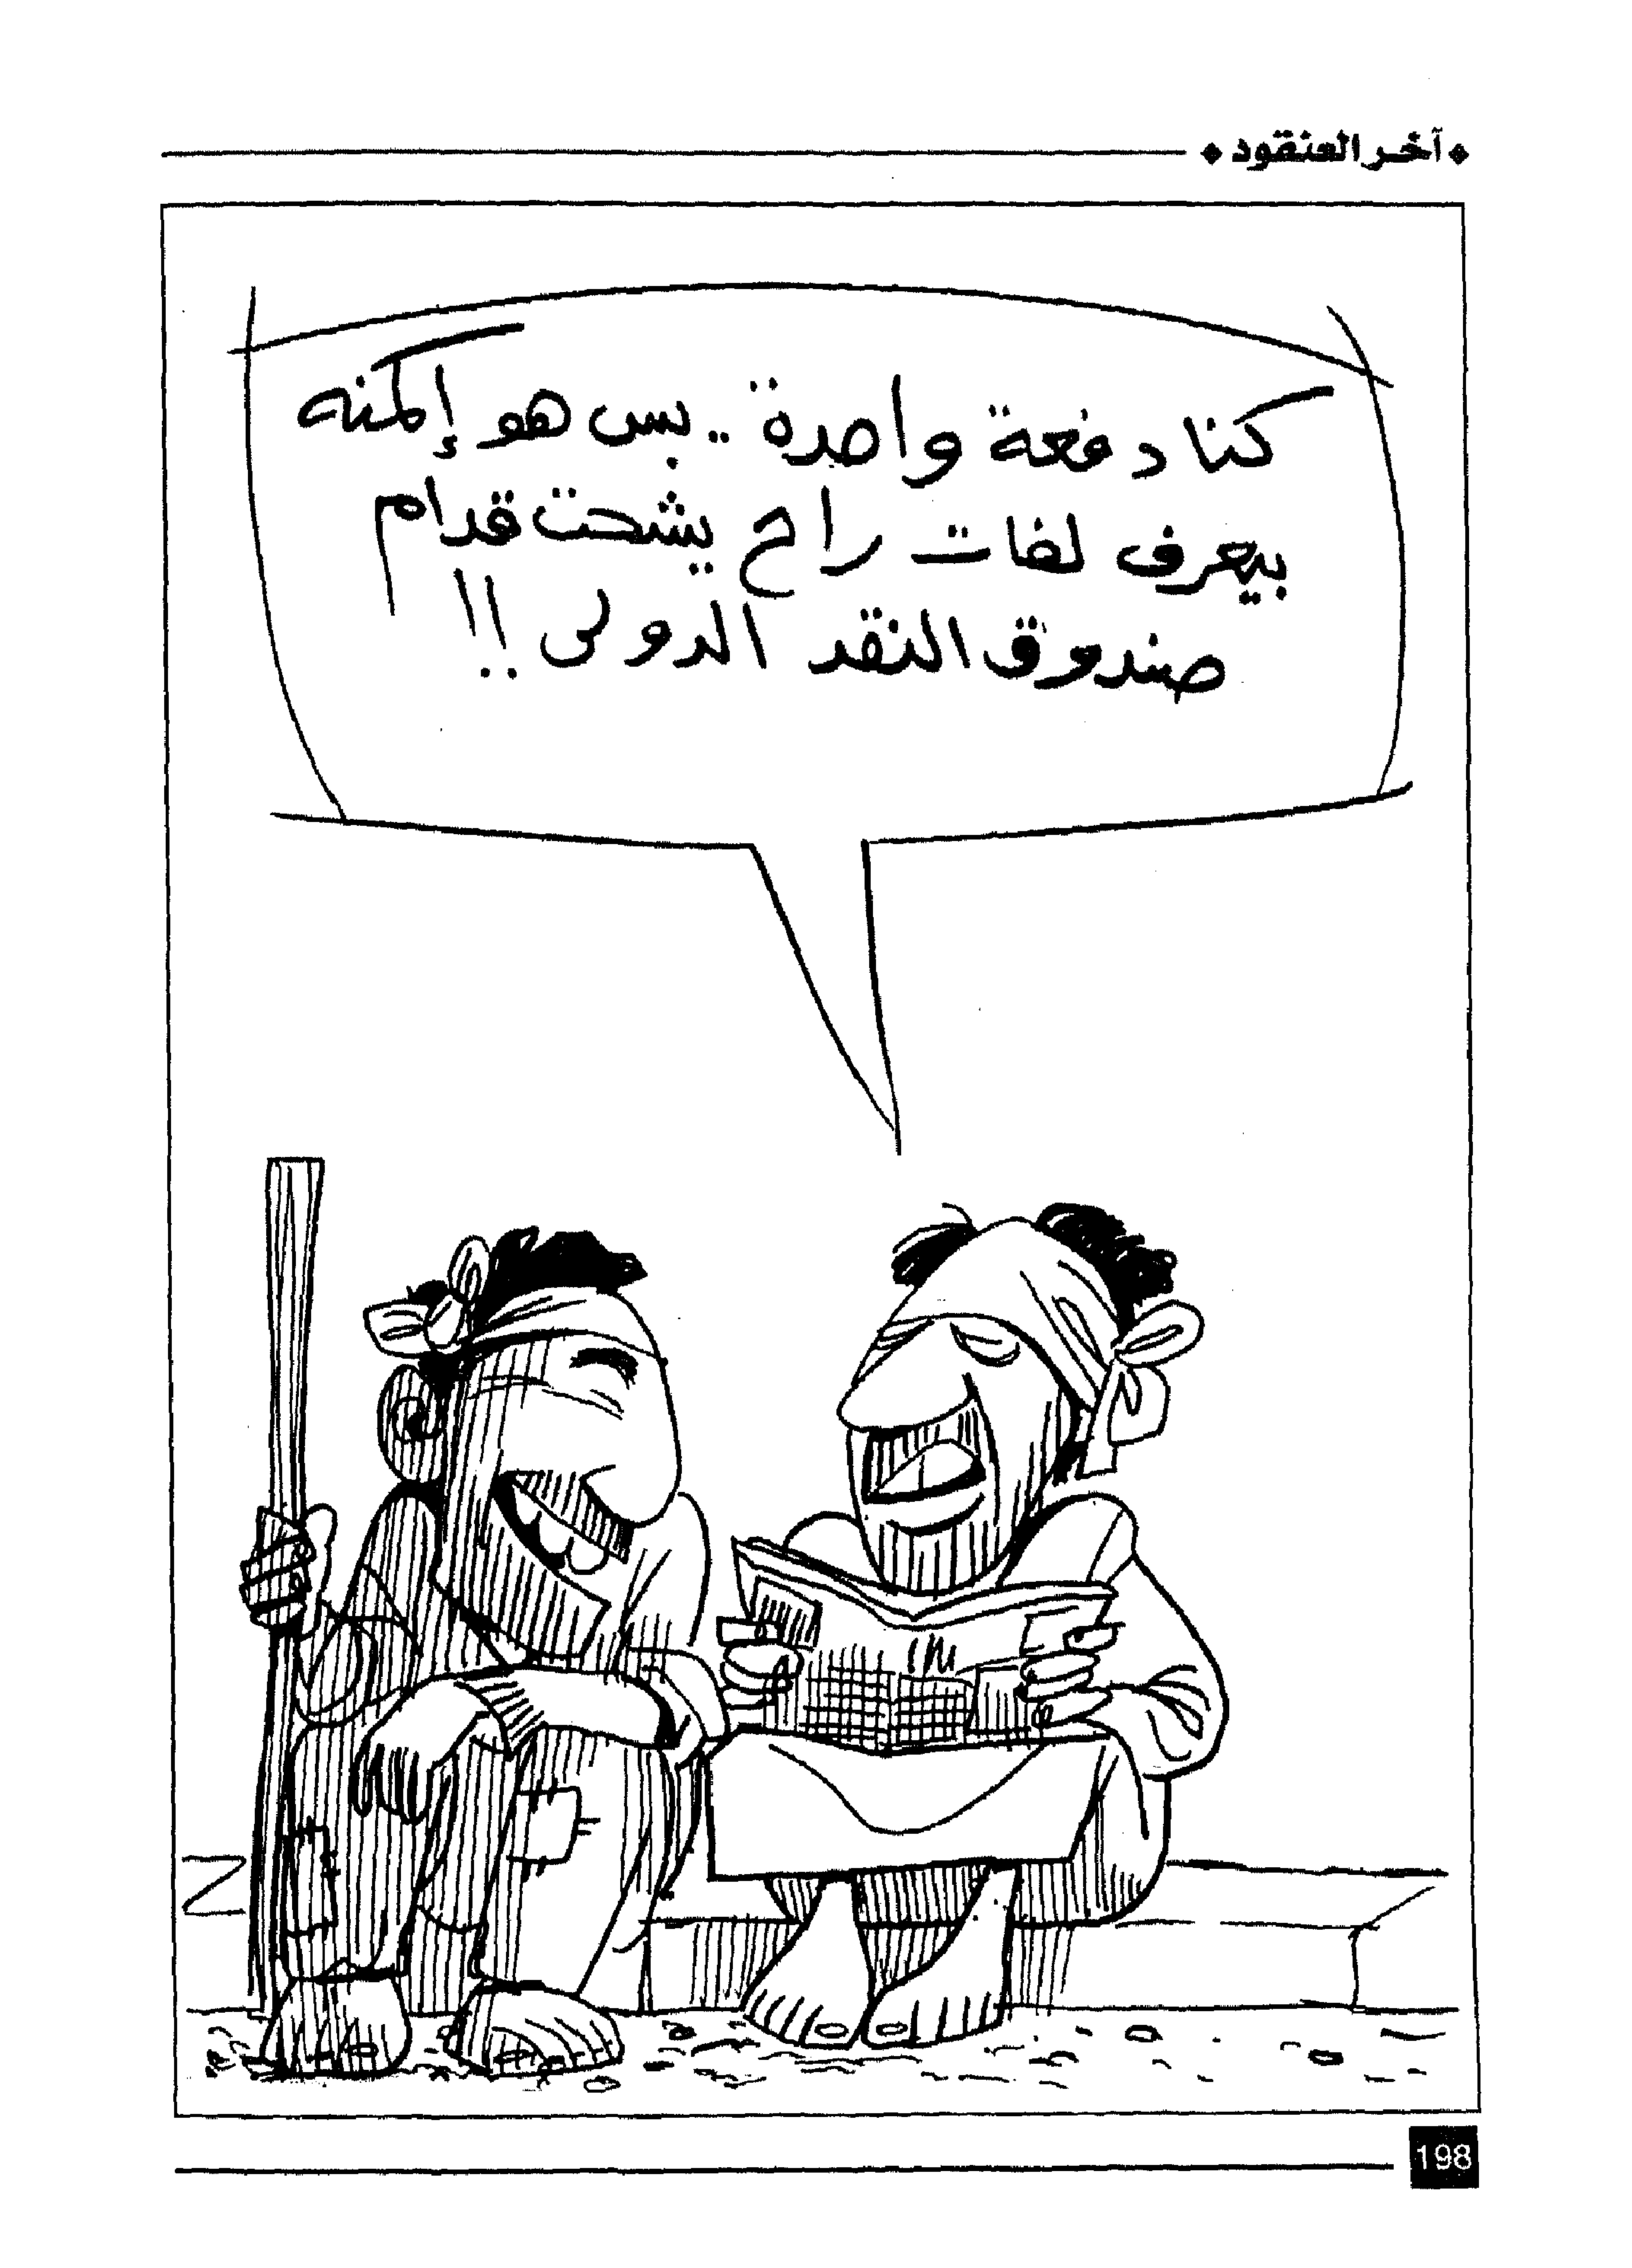 آخر العنقود
كنا دفعة واحدة .. بس هو إلمنه
بيعرف لغات راح يشحت قدام
صندوق النقد الدولى !!
198